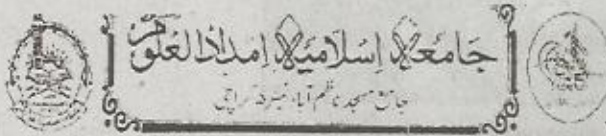 جامعہ اسلامیہ امداد العلوم
جامع مسجد ناظم آباد نمبر ۵ کراچی